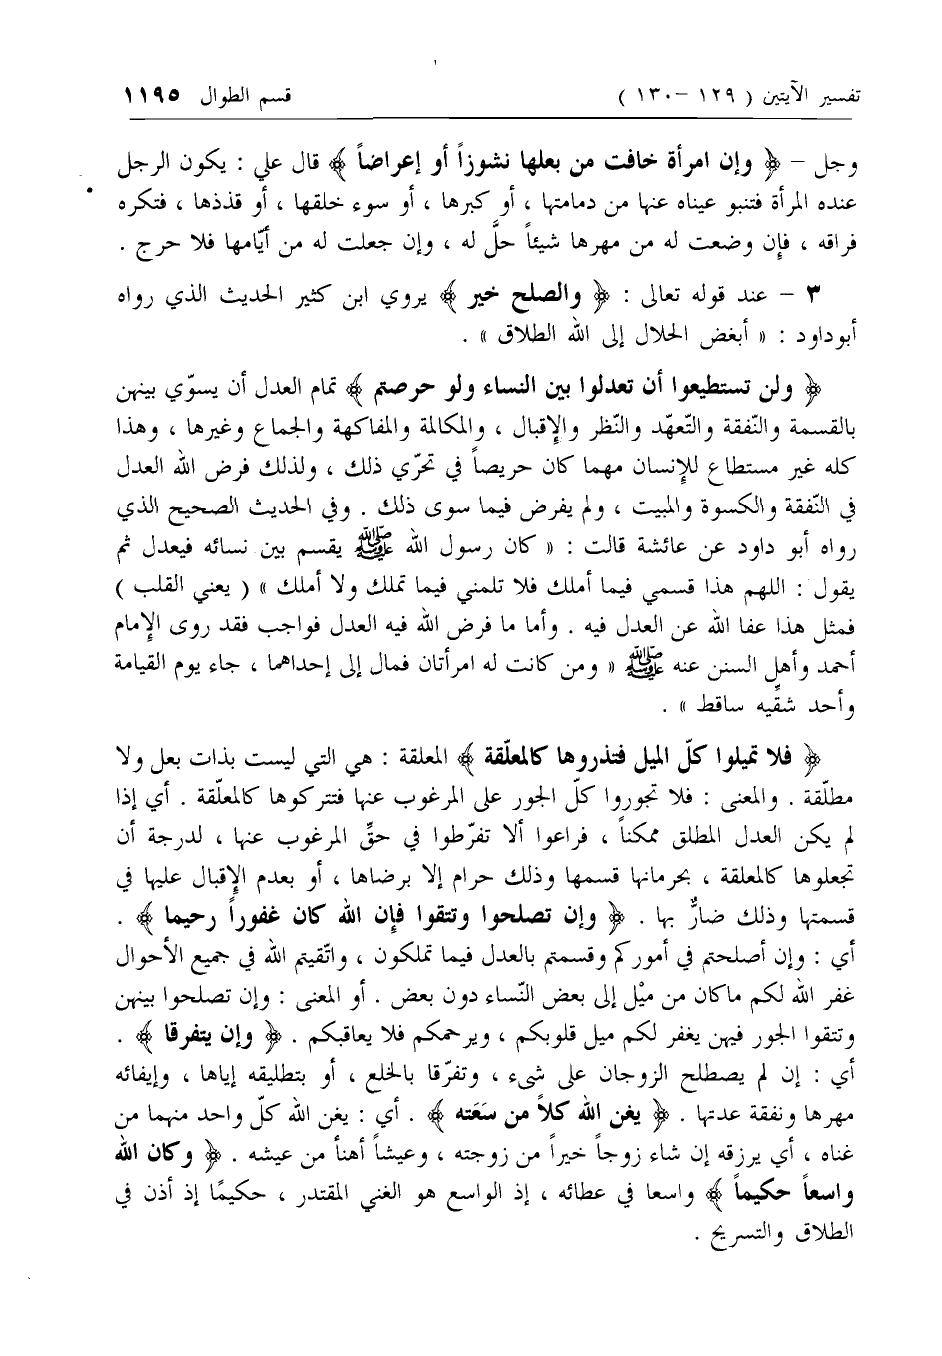 تفسير الآيتين ( ١٢٩ – ١٣٠ ) قسم الطوال ١١٩٥
وجل – ﴿ وإن امرأة خافت من بعلها نشوزاً أو إعراضاً ﴾ قال علي : يكون الرجل
عنده المرأة فتنبو عيناه عنها من دمامتها ، أو كبرها ، أو سوء خلقها ، أو قذذها ، فتكره
فراقه ، فإن وضعت له من مهرها شيئاً حلَّ له ، وإن جعلت له من أيّامها فلا حرج .
٣ – عند قوله تعالى : ﴿ والصلح خير ﴾ يروي ابن كثير الحديث الذي رواه
أبوداود : « أبغض الحلال إلى الله الطلاق » .
﴿ ولن تستطيعوا أن تعدلوا بين النساء ولو حرصتم ﴾ تمام العدل أن يسوّي بينهن
بالقسمة والنّفقة والتّعهّد والنّظر والإقبال ، والمكالمة والمفاكهة والجماع وغيرها ، وهذا
كله غير مستطاع للإنسان مهما كان حريصاً في تحرّي ذلك ، ولذلك فرض الله العدل
في النّفقة والكسوة والمبيت ، ولم يفرض فيما سوى ذلك . وفي الحديث الصحيح الذي
رواه أبو داود عن عائشة قالت : « كان رسول الله ﷺ يقسم بين نسائه فيعدل ثم
يقول : اللهم هذا قسمي فيما أملك فلا تلمني فيما تملك ولا أملك » ( يعني القلب )
فمثل هذا عفا الله عن العدل فيه . وأما ما فرض الله فيه العدل فواجب فقد روى الإمام
أحمد وأهل السنن عنه ﷺ « ومن كانت له امرأتان فمال إلى إحداهما ، جاء يوم القيامة
وأحد شقِّيه ساقط » .
﴿ فلا تميلوا كلّ الميل فتذروها كالمعلّقة ﴾ المعلقة : هي التي ليست بذات بعل ولا
مطلّقة . والمعنى : فلا تجوروا كلّ الجور على المرغوب عنها فتتركوها كالمعلّقة . أي إذا
لم يكن العدل المطلق ممكناً ، فراعوا ألا تفرّطوا في حقِّ المرغوب عنها ، لدرجة أن
تجعلوها كالمعلقة ، بحرمانها قسمها وذلك حرام إلا برضاها ، أو بعدم الإقبال عليها في
قسمتها وذلك ضارٌّ بها . ﴿ وإن تصلحوا وتتقوا فإن الله كان غفوراً رحيما ﴾ .
أي : وإن أصلحتم في أموركم وقسمتم بالعدل فيما تملكون ، واتّقيتم الله في جميع الأحوال
غفر الله لكم ماكان من ميْل إلى بعض النّساء دون بعض . أو المعنى : وإن تصلحوا بينهن
وتتقوا الجور فيهن يغفر لكم ميل قلوبكم ، ويرحمكم فلا يعاقبكم . ﴿ وإن يتفرقا ﴾ .
أي : إن لم يصطلح الزوجان على شيء ، وتفرّقا بالخلع ، أو بتطليقه إياها ، وإيفائه
مهرها ونفقة عدتها . ﴿ يغن الله كلاً من سَعَته ﴾ . أي : يغن الله كلّ واحد منهما من
غناه ، أي يرزقه إن شاء زوجاً خيراً من زوجته ، وعيشاً أهنأ من عيشه . ﴿ وكان الله
واسعاً حكيماً ﴾ واسعا في عطائه ، إذ الواسع هو الغني المقتدر ، حكيمًا إذ أذن في
الطلاق والتسريح .